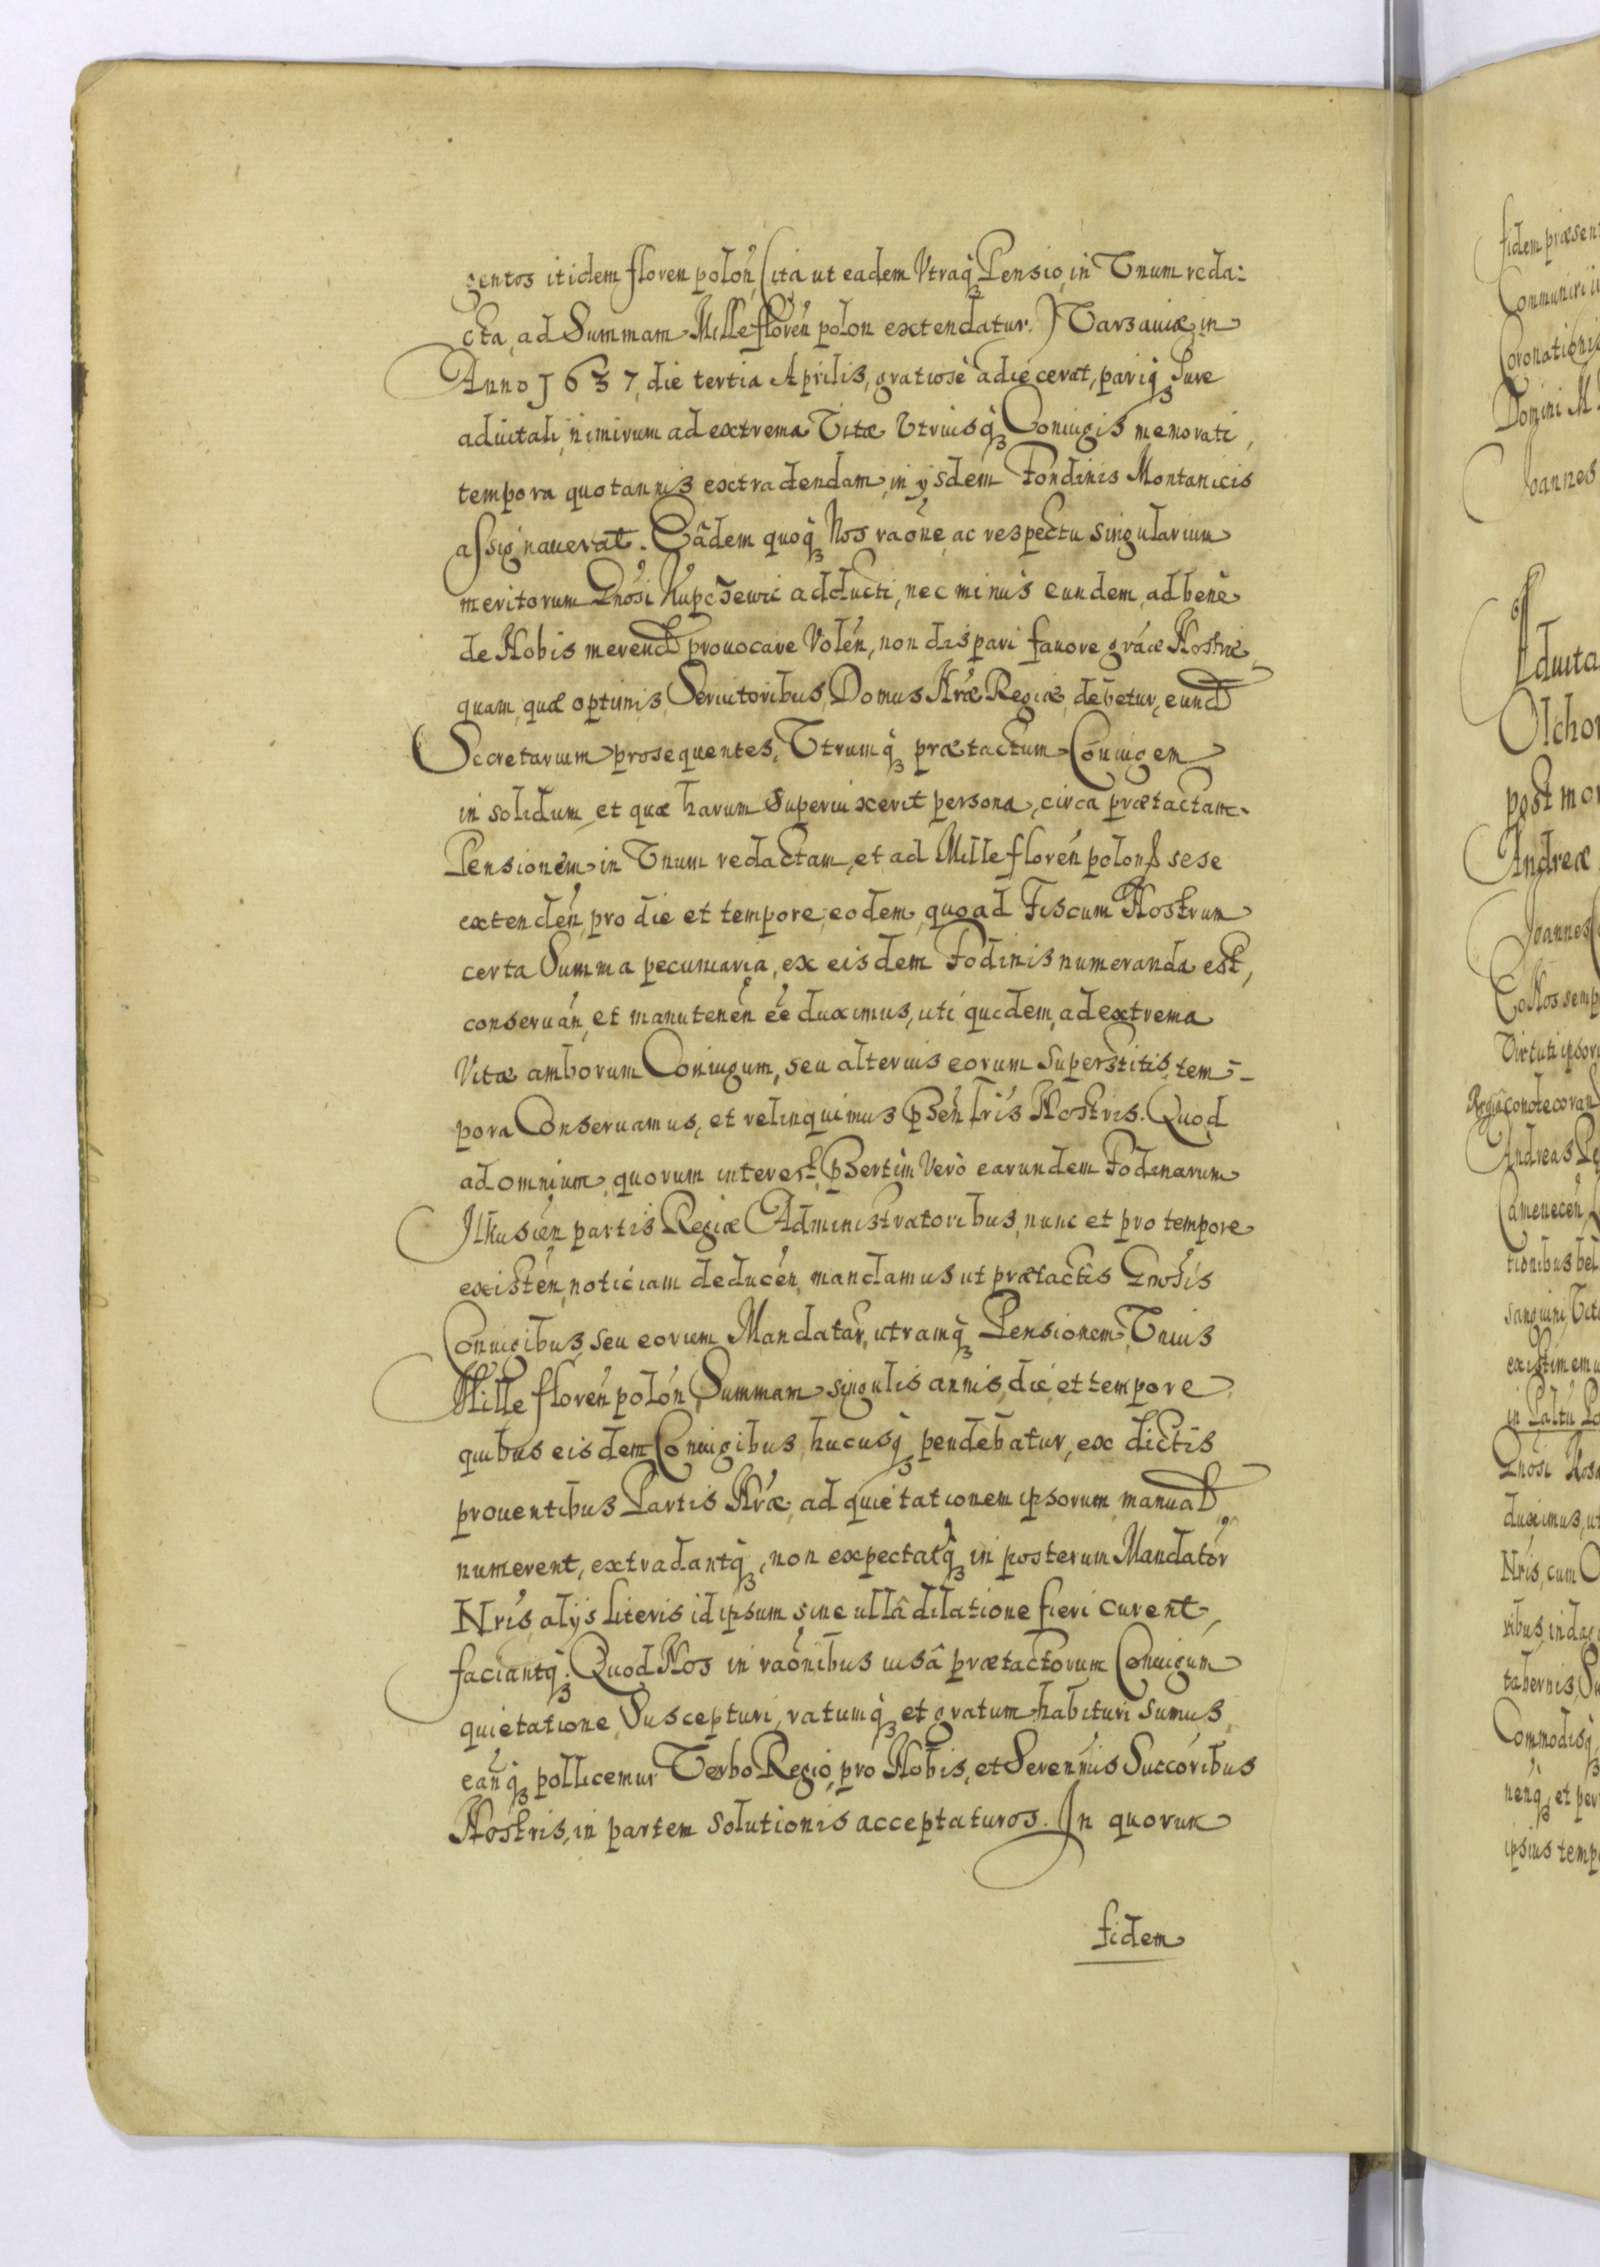 gentos itidem floreń poloń, (ita ut eadem Vtraq̃ꝫ Pensio, in Vnum reda-
cta, ad Summam Mille floreń polon extendatur.) Varsauiæ, in
Anno 1637, die tertia Aprilis, gratiosè adiecerat, pariqꝫ Iure
aduitali, nimirum ad extrema Vitæ Vtriusq̃ꝫ Coniugis memorati,
tempora quotannis extradendam, in ijsdem Fondinis Montanicis
assignauerat. Eâdem quoq̃ꝫ Nos raõne, ac respectu singularium
meritorum Gnosi Kupczewic adducti, nec minùs eundem, ad benè
de Nobis merend provocare Voleń, non dispari favore gráæ Nostræ
quam, quæ optimis Seruitoribus Domus Nræ Regiæ, debetur, eund
Secretarium prosequentes, Vtrumq̃ꝫ prætactum Coniugem
in solidum, et quæ harum Superuixerit persona, circa prætactam
Pensionem in Vnum redactam, et ad Mille floreń polon sese
extendeń, pro die et tempore, eodem, quo ad Fiscum Nostrum
certa Summa pecuniaria, ex eisdem Fodinis numeranda est,
conseruań, et manuteneń eẽ duximus, uti quidem, ad extrema
Vitæ amborum Coniugum, seu alterius eorum Superstitis, tem-
pora Conseruamus, et relinquimus pñseń lris Nostris. Quod
ad omnium, quorum interest, pñsertim Verò earundem Fodinarum
Ilkusień partis Regiæ Administratoribus, nunc et pro tempore
existeń, noticiam deduceń, mandamus ut prætactis Gnosis
Coniugibus, seu eorum Mandatar, utramq̃ꝫ Pensionem, Vnius
Mille floreń poloń Summam singulis annis, die et tempore
quibus eisdem Coniugibus, hucusqꝫ pendebatur, ex dictis
prouentibus Partis Nræ, ad quietationem ipsorum, manual,
numerent, extradantq̃ꝫ, non expectatq̃ꝫ in posterum Mandator
Nris, alijs literis id ipsum, sine ullâ dilatione fieri curent,
faciantq̃ꝫ. Quod Nos in raõnibus uisâ prætactorum Coniugum
quietatione, Suscepturi, ratumq̃ꝫ et gratum habituri sumus,
eamq̃ꝫ pollicemur Verbo Regio, pro Nobis, et Serennis Succoribus
Nostris, in partem solutionis acceptaturos. In quorum
fidem
fidem præsen
Communiri i
Coronationis
Domini M
Ioannes
Aduita
Olchow
post mor
Andreæ
Ioannes
Eo Nos semp
Virtuti ipsoru
Regiâ condecoran
Andreas Pe
Camenecen
tionibus bel
sanguini, Vit
existimemu
in Paltu Po
Gnosi Rosa
duximus, ut
Nris, cum
ribus, indag
tabernis, Su
Commodisq̃
nenq̃ꝫ, et per
ipsius temp